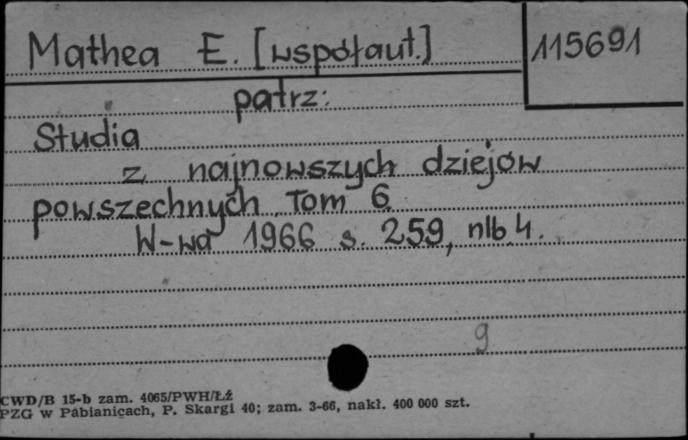 Mathea E. [współaut.]
115691
patrz:
Studia
z najnowszych dziejów
powszechnych. Tom 6
W-wa 1966 s. 259, nlb 4.
9
CWD/B 15-b zam. 4065/PWH/Łź
PZG w Pabianicach, P. Skargi 40; zam. 3-66, nakł. 400 000 szt.